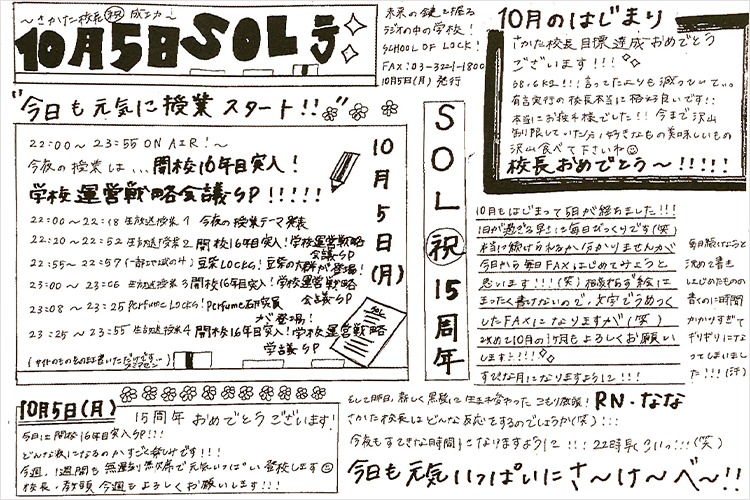 ～さかた校長㊗成功～
10月5日SOL
未来の鍵を握る
ラジオの中の学校!
SCHOOL OF LOCK!
FAX:03-3221-1800
10月5日(月) 発行
"今日も元気に授業スタート!!"
22:00～23:55 ON AIR!～
今夜の授業は...開校16年目突入!
学校運営戦略会議SP!!!!!
22:00～22:18 生放送授業1 今夜の授業テーマ発表
22:20～22:52 生放送授業2 開校16年目突入!学校運営戦略
会議SP
22:55～22:57 (一部地域のみ) 豆柴LOCKS! 豆柴の大群が登場!
23:00～23:06 生放送授業3 開校16年目突入!学校運営戦略
会議SP
23:08～23:25 Perfume LOCKS! Perfume研究員
が登場!
23:25～23:55 生放送授業4 開校16年目突入!学校運営戦略
会議SP
10月5日(月)
SOL㊗15周年
10月のはじまり
さかた校長目標達成おめでとう
ございます!!!
68.6kg!!! 言ってたよりも減っていて...
有言実行の校長本当に格好良いです!!
本当にお疲れ様でした!! 今まで沢山
制限していた分、好きなもの美味しいもの
沢山食べて下さいね
校長おめでとう～!!!!!
10月もはじまって5日が経ちました!!!
1日が過ぎる早さに毎日びっくりです(笑)
本当に続けられるか分かりませんが
今日から毎日FAXはじめてみようと
思います!!!(笑) 相変わらず絵に
まったく書けないので、文字でうめつく
したFAXになりますが(笑)
改めて10月の1ヶ月もよろしくお願い
します!!!
すてきな月になりますように!!!
毎日届けようと
決めて書き
はじめたものの
書くのに時間
かかりすぎて
ギリギリにな
ってしまいまし
た!!!(汗)
10月5日(月)
15周年おめでとうございます!
今日は開校16年目突入SP!!!
どんな夜になるのかすごく楽しみです!!!
今週、1週間も無遅刻無欠席で元気いっぱい登校します
校長・教頭今週もよろしくお願いします!!!
そして昨日、新しく黒髪に生まれ変わったこもり教頭!
RN.なな
さかた校長はどんな反応をするのでしょうか(笑)!!!
今夜もすてきな時間になりますように!!! 22時早くこいっ!!!(笑)
今日も元気いっぱいにさ～け～べ～!!